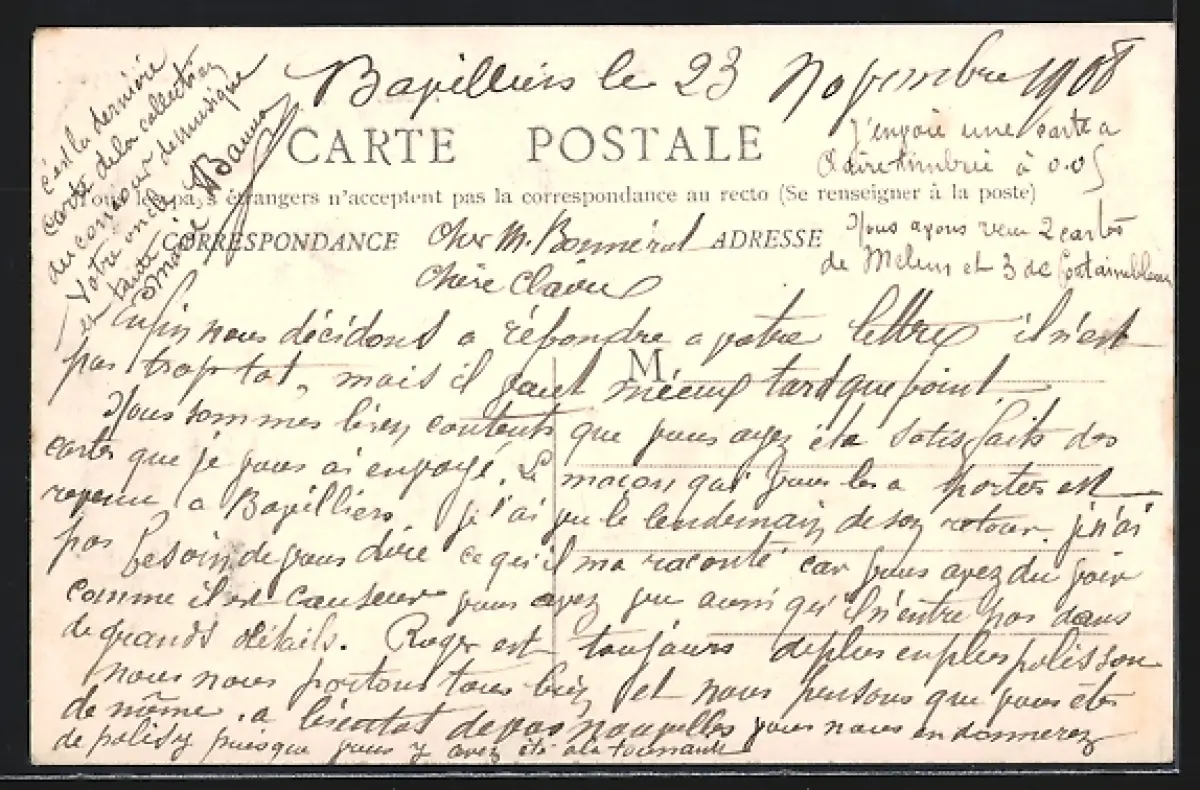 Bavilliers le 23 Novembre 1908
c'est la dernière
carte de la collection
du concour de musique
Votre oncle
et tante
CARTE POSTALE
J'envoie une carte a
Claire timbrée à 0.05
Tous les pays étrangers n'acceptent pas la correspondance au recto (Se renseigner à la poste)
CORRESPONDANCE
ADRESSE
Nous avons reçu 2 cartes
de Melun et 3 de Fontainebleau
Cher M. Bonnéral
Chère Claire
Enfin nous décidons a répondre a votre lettre il n'est
pas trop tot, mais il vaut mieux tard que point.
M
Nous sommes bien contents que vous ayez été satisfaits des
cartes que je vous ai envoyé. Le maçon qui vous les a portés est
revenu a Bavilliers. je l'ai vu le lendemain de son retour. j'n'ai
pas besoin de vous dire ce qu'il ma raconté car vous avez du voir
comme il est causeur vous avez vu aussi qu'il n'entre pas dans
de grands détails. Roger est toujours de plus en plus polisson
nous nous portons tous bien et nous pensons que vous êtes
de même. a bientot de vos nouvelles vous nous en donnerez
de puisque vous y avez été a la toussaint